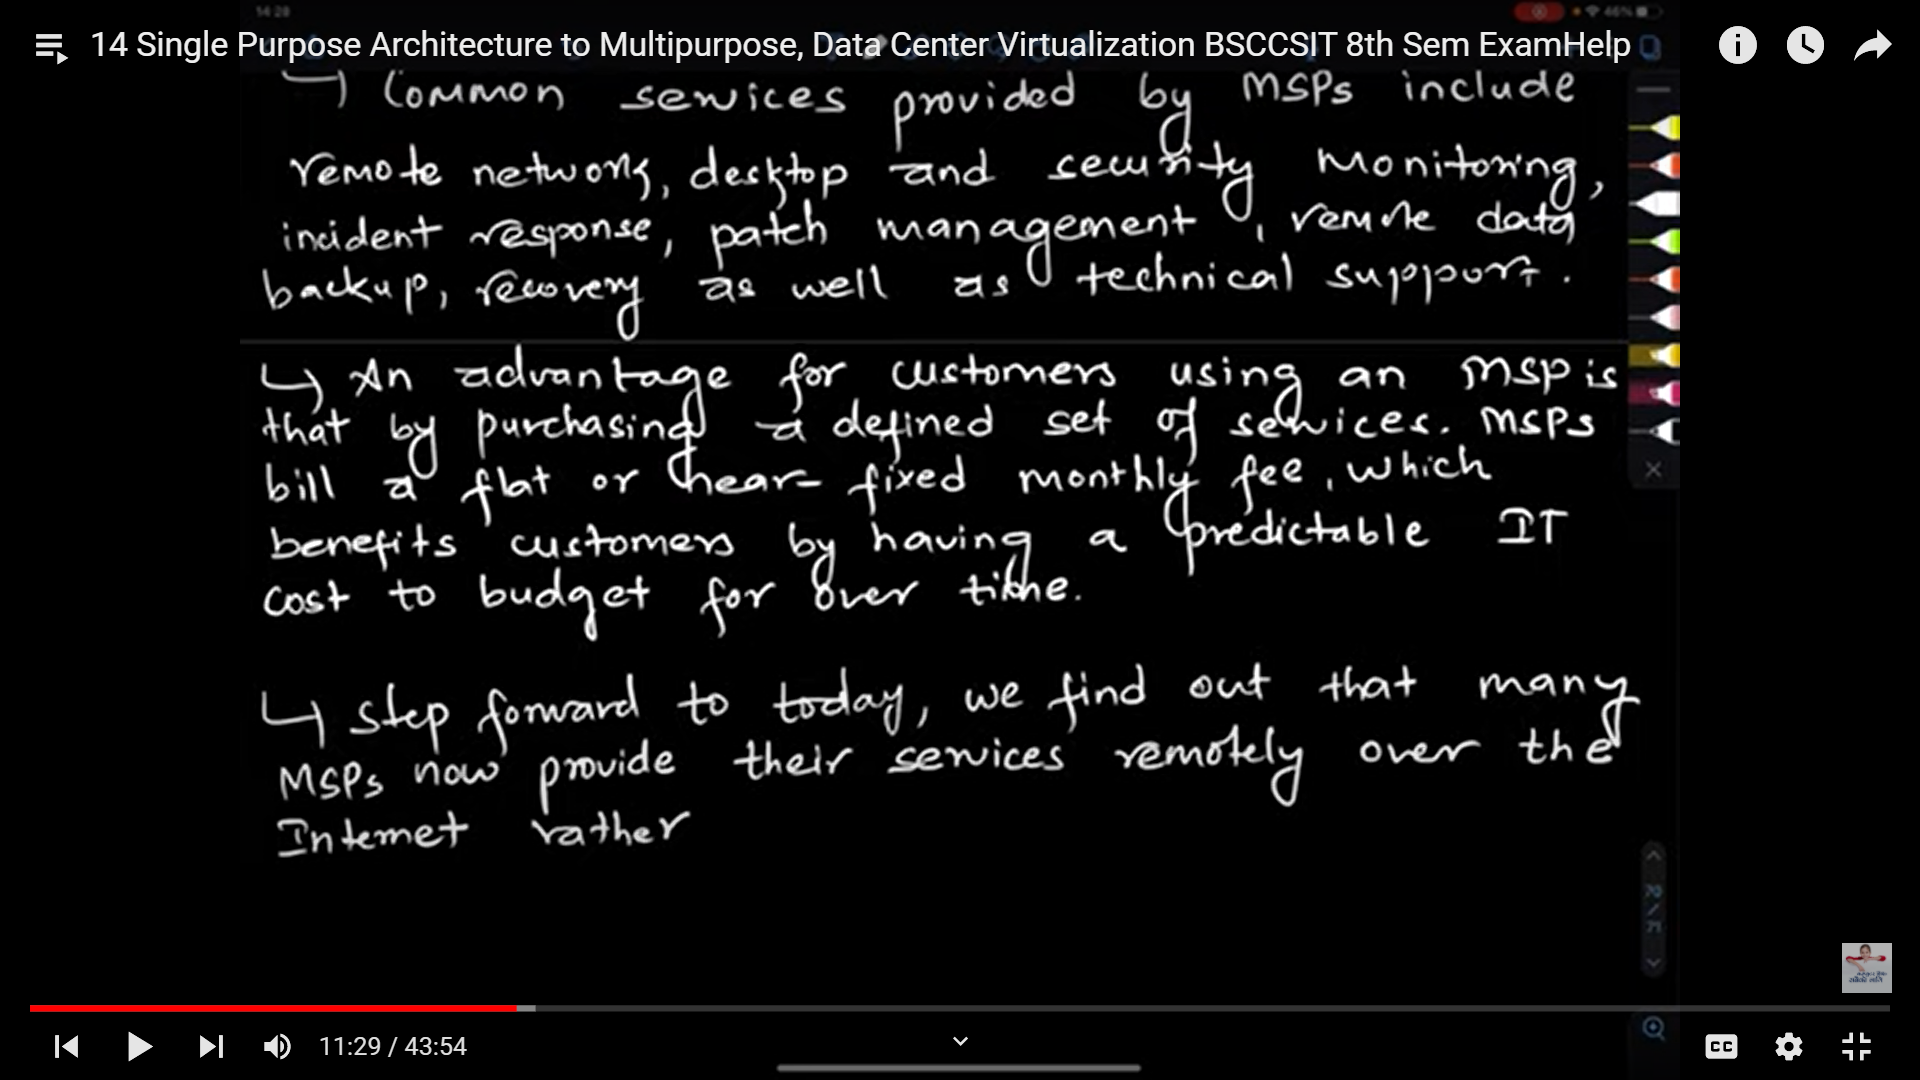 14:28
46%
14 Single Purpose Architecture to Multipurpose, Data Center Virtualization BSCCSIT 8th Sem ExamHelp
↳ Common services provided by MSPs include
remote network, desktop and security monitoring,
incident response, patch management, remote data
backup, recovery as well as technical support.
↳ An advantage for customers using an MSP is
that by purchasing a defined set of services. MSPs
bill a flat or near-fixed monthly fee, which
benefits customers by having a predictable IT
cost to budget for over time.
↳ Step forward to today, we find out that many
MSPs now provide their services remotely over the
Internet rather
11:29 / 43:54
CC